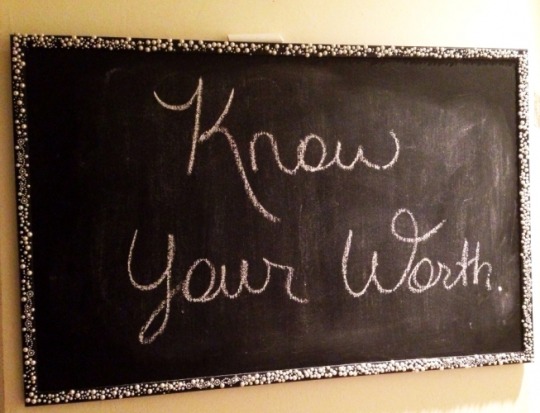 Know
Your Worth.